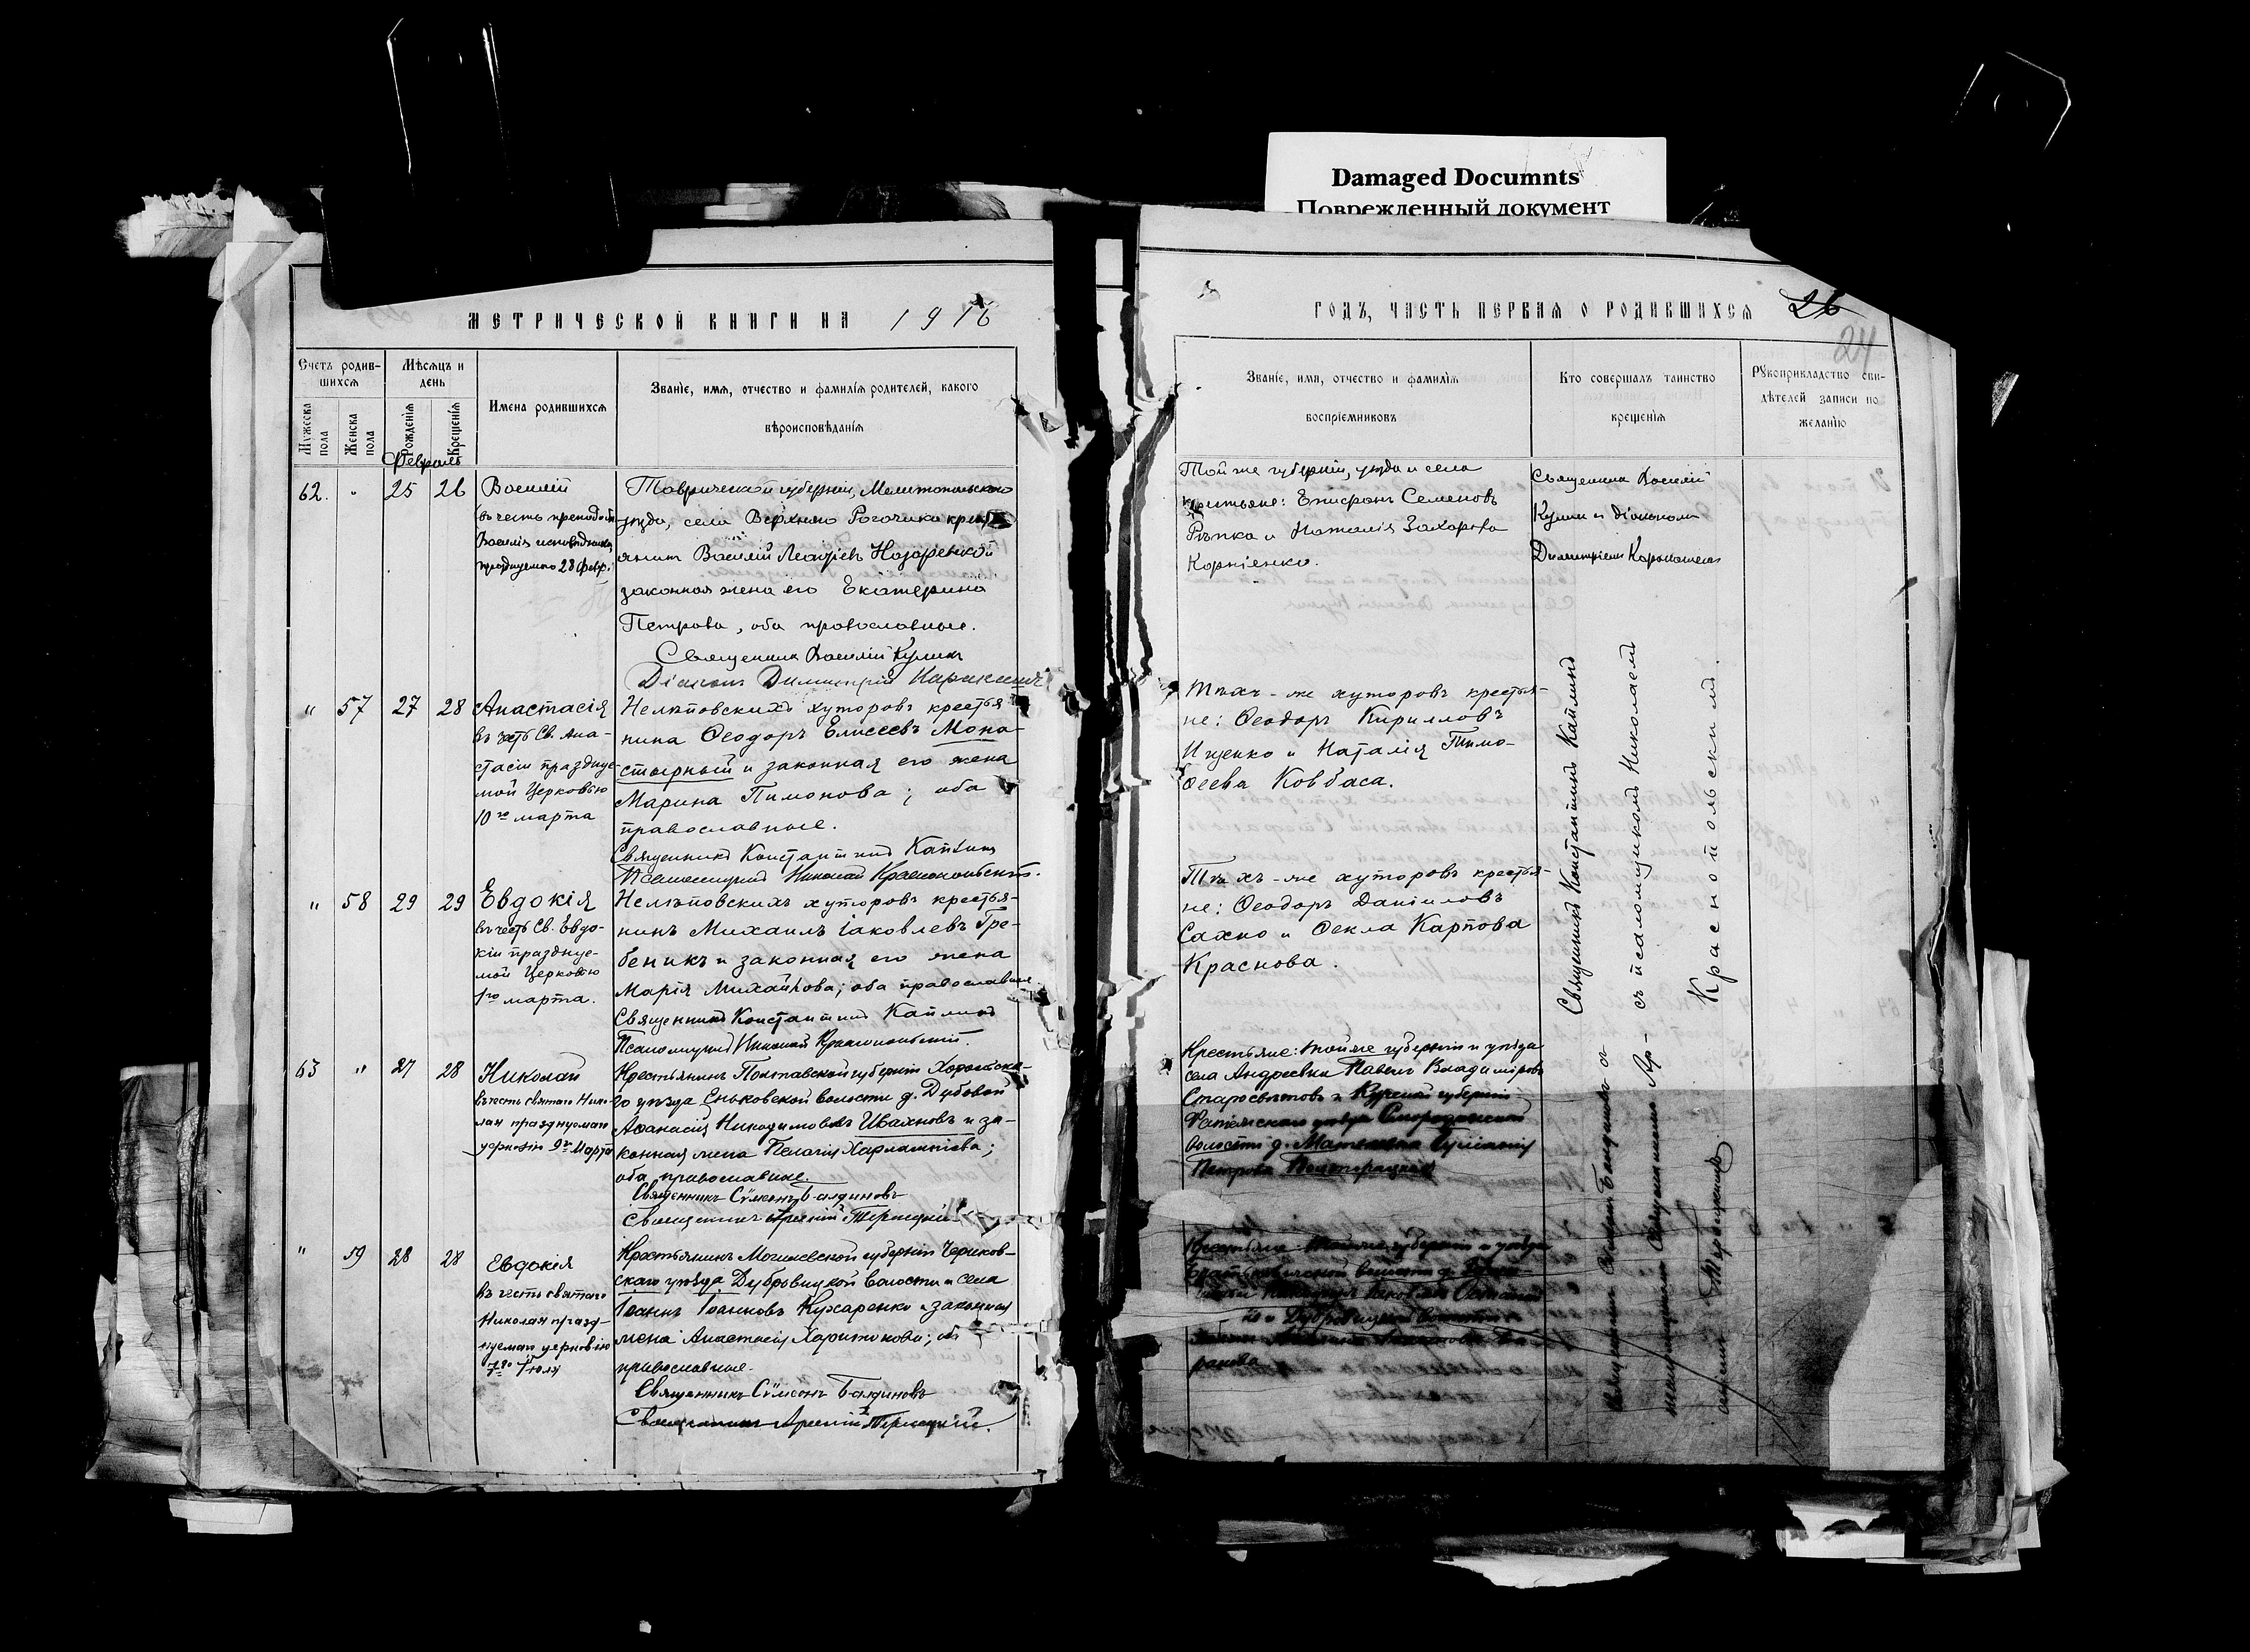 Damaged Documnts
Поврежденный документ
МЕТРИЧЕСКОЙ КНИГИ НА 1916
ГОДЪ, ЧАСТЬ ПЕРВАЯ О РОДИВШИХСЯ 26
24
Счетъ родив-
шихся
Мужеска пола
Женска пола
Мѣсяцъ и
день
Рожденія
Крещенія
Имена родившихся
Званіе, имя, отчество и фамилія родителей, какого
вѣроисповѣданія
Званіе, имя, отчество и фамилія
воспріемниковъ
Кто совершалъ таинство
крещенія
Рукоприкладство сви-
дѣтелей записи по
желанію
Февраль
62. " 25 26
Василій
въ честь преподоб
Василія исповѣдника
празднуемаго 28 февр.
Таврической губерніи, Мелитопольскаго
уѣзда, села Верхняго Рогачика крест
янин Василій Назаренко и
законная жена его Екатерина
Петрова, оба православные.
Священник Василій Кулик
Діакон Димитрій
Той же губерніи, уѣзда и села
крестьяне: Епифанъ Семеновъ
Рѣпка и Наталія Захарова
Корніенко.
Священник Василій
Кулик и діаконом
Димитріем
" 57 27 28
Анастасія
въ честь Св. Ана-
стасіи праздну-
мой Церковью
10го марта
Нелѣповскихъ хуторовъ крестья
нина Ѳеодоръ Елисеевъ Мона-
стырный и законная его жена
Марина Пимонова; оба
православные.
Священникъ Константинъ Каплинъ
Псаломщикъ Николай Краснопольскій.
Тѣхъ-же хуторовъ крестья-
не: Ѳеодоръ Кирилловъ
Ищенко и Наталія Тимо-
ѳеева Ковбаса.
" 58 29 29
Евдокія
въ честь Св. Евдо-
кіи праздну-
мой Церковью
1го марта.
Нелѣповскихъ хуторовъ крестья-
нинъ Михаилъ Іаковлевъ Гре-
беникъ и законная его жена
Марія Михайлова; оба православные.
Священникъ Константинъ Каплинъ
Псаломщикъ Николай Краснопольскій.
Тѣхъ-же хуторовъ крестья-
не: Ѳеодоръ Даніиловъ
Сахно и Ѳекла Карпова
Краснова.
Священникъ Константинъ Каплинъ
съ псаломщикомъ Николаемъ
Краснопольскимъ.
63 " 27 28
Николай
въ честь святаго Нико-
лая празднуемаго
церковію 9го Марта
Крестьянинъ Полтавской губерніи Хорольска-
го уѣзда Еньковской волости д. Дубовой
Аѳанасій Никодимовъ Ивахновъ и за-
конная жена Пелагія Харлампіева;
оба православные.
Священникъ Сѵмеонъ Балдиновъ
Священникъ Арсеній Терлецкій
Крестьяне: той же губерніи и уѣзда
села Андреевки Павелъ Владиміровъ
Старосвѣтовъ и Курской губерніи
Фатежскаго уѣзда
волости д.
Петрова
" 59 28 28
Евдокія
въ честь святаго
Николая празд-
нуемаго церковію
7го Іюля
Крестьянинъ Могилевской губерніи Чериков-
скаго уѣзда Дубровицкой волости и села
Іоаннъ Іоанновъ Кухаренко и законная
жена Анастасія Харитонова; об
православные.
Священникъ Сѵмеонъ Балдиновъ
Священникъ Арсеній Терлецкій.
Крестьяне: той же губерніи и уѣзда
волости
и Дубровицкой волости